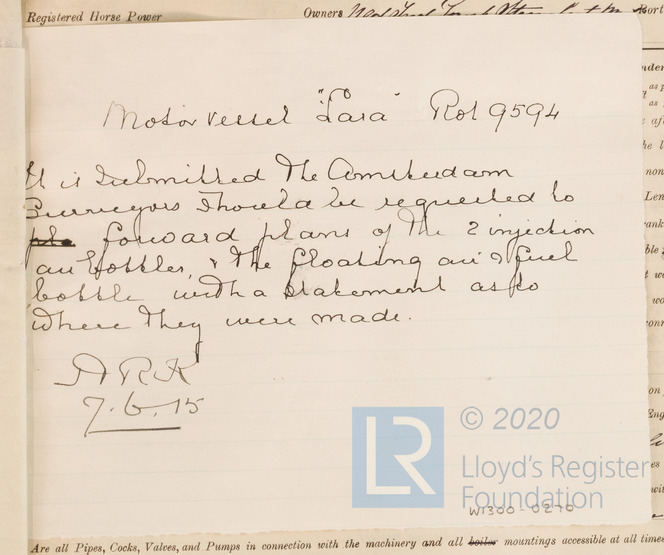 Registered Horse Power Owners
Motor vessel "Lara" Rot 9594
It is submitted the Amsterdam
Surveyors should be requested to
forward plans of the 2 injection
air bottles, & the floating air & fuel
bottle with a statement as to
where they were made.
ARK
7.6.15
© 2020
LR
Lloyd's Register
Foundation
W1300-0270
Are all Pipes, Cocks, Valves, and Pumps in connection with the machinery and all boiler mountings accessible at all times